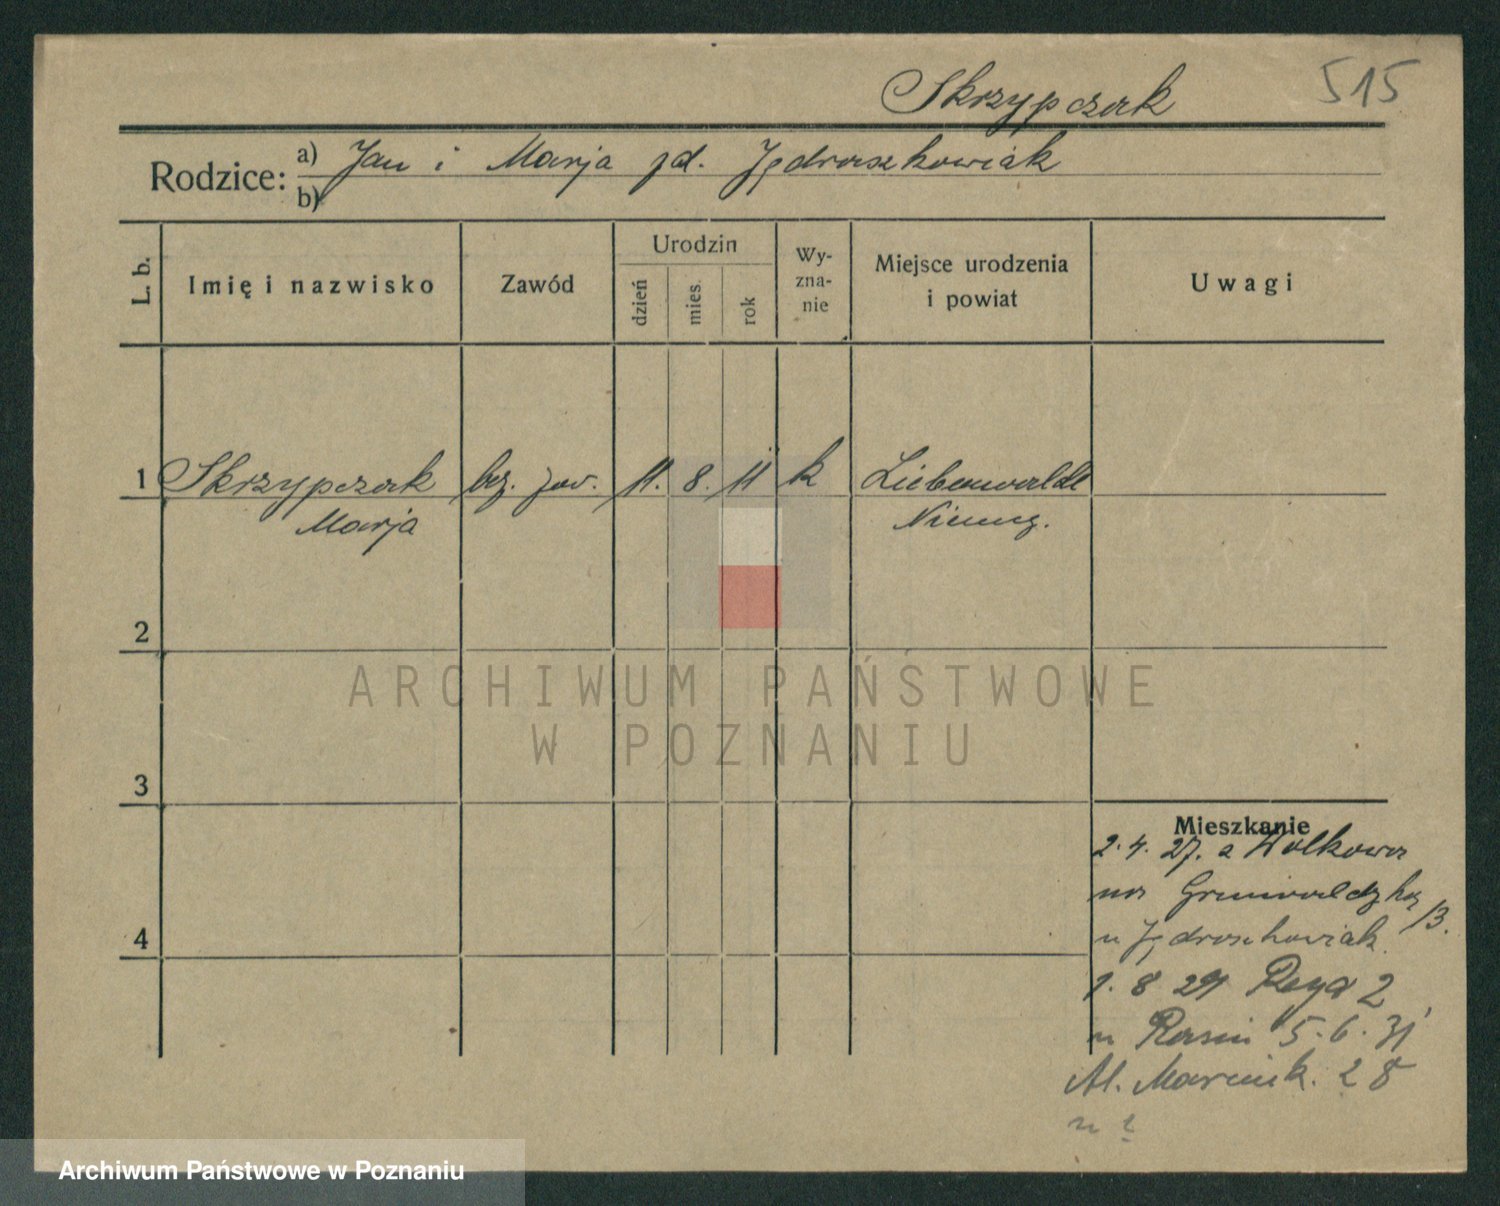 Skrzypczak 515
Rodzice: a) Jan i Marja zd. Jędraszkowiak
b)
L. b. Imię i nazwisko Zawód Urodzin dzień mies. rok Wy-zna-nie Miejsce urodzenia i powiat Uwagi
1 Skrzypczak bez. zaw. 11. 8. 11 k Liebenwalde
Marja Niemcy.
2
ARCHIWUM PAŃSTWOWE
W POZNANIU
3
Mieszkanie
2. 4. 27. z Wolkowa
na Grunwaldzką 13.
u Jędraszkowiak
1. 8 29 Reya 2
u 5. 6. 31
4
Al. Marcink. 28
u ?
Archiwum Państwowe w Poznaniu